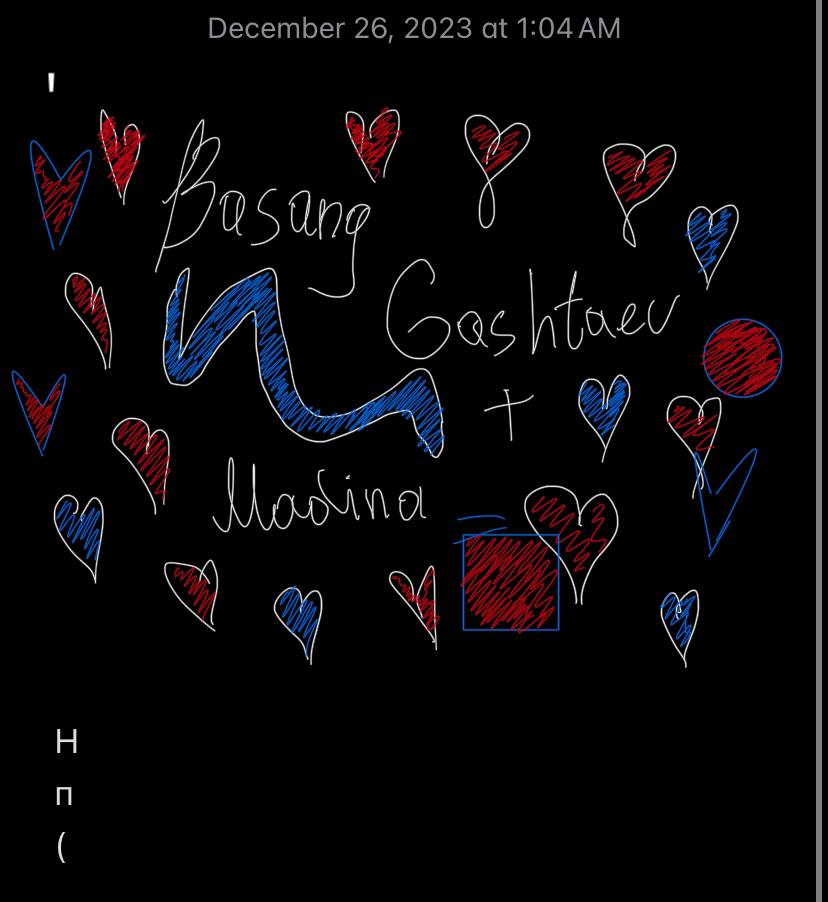 December 26, 2023 at 1:04 AM
'
Basang
Gashtaev
+
Madina
=
Н
п
(